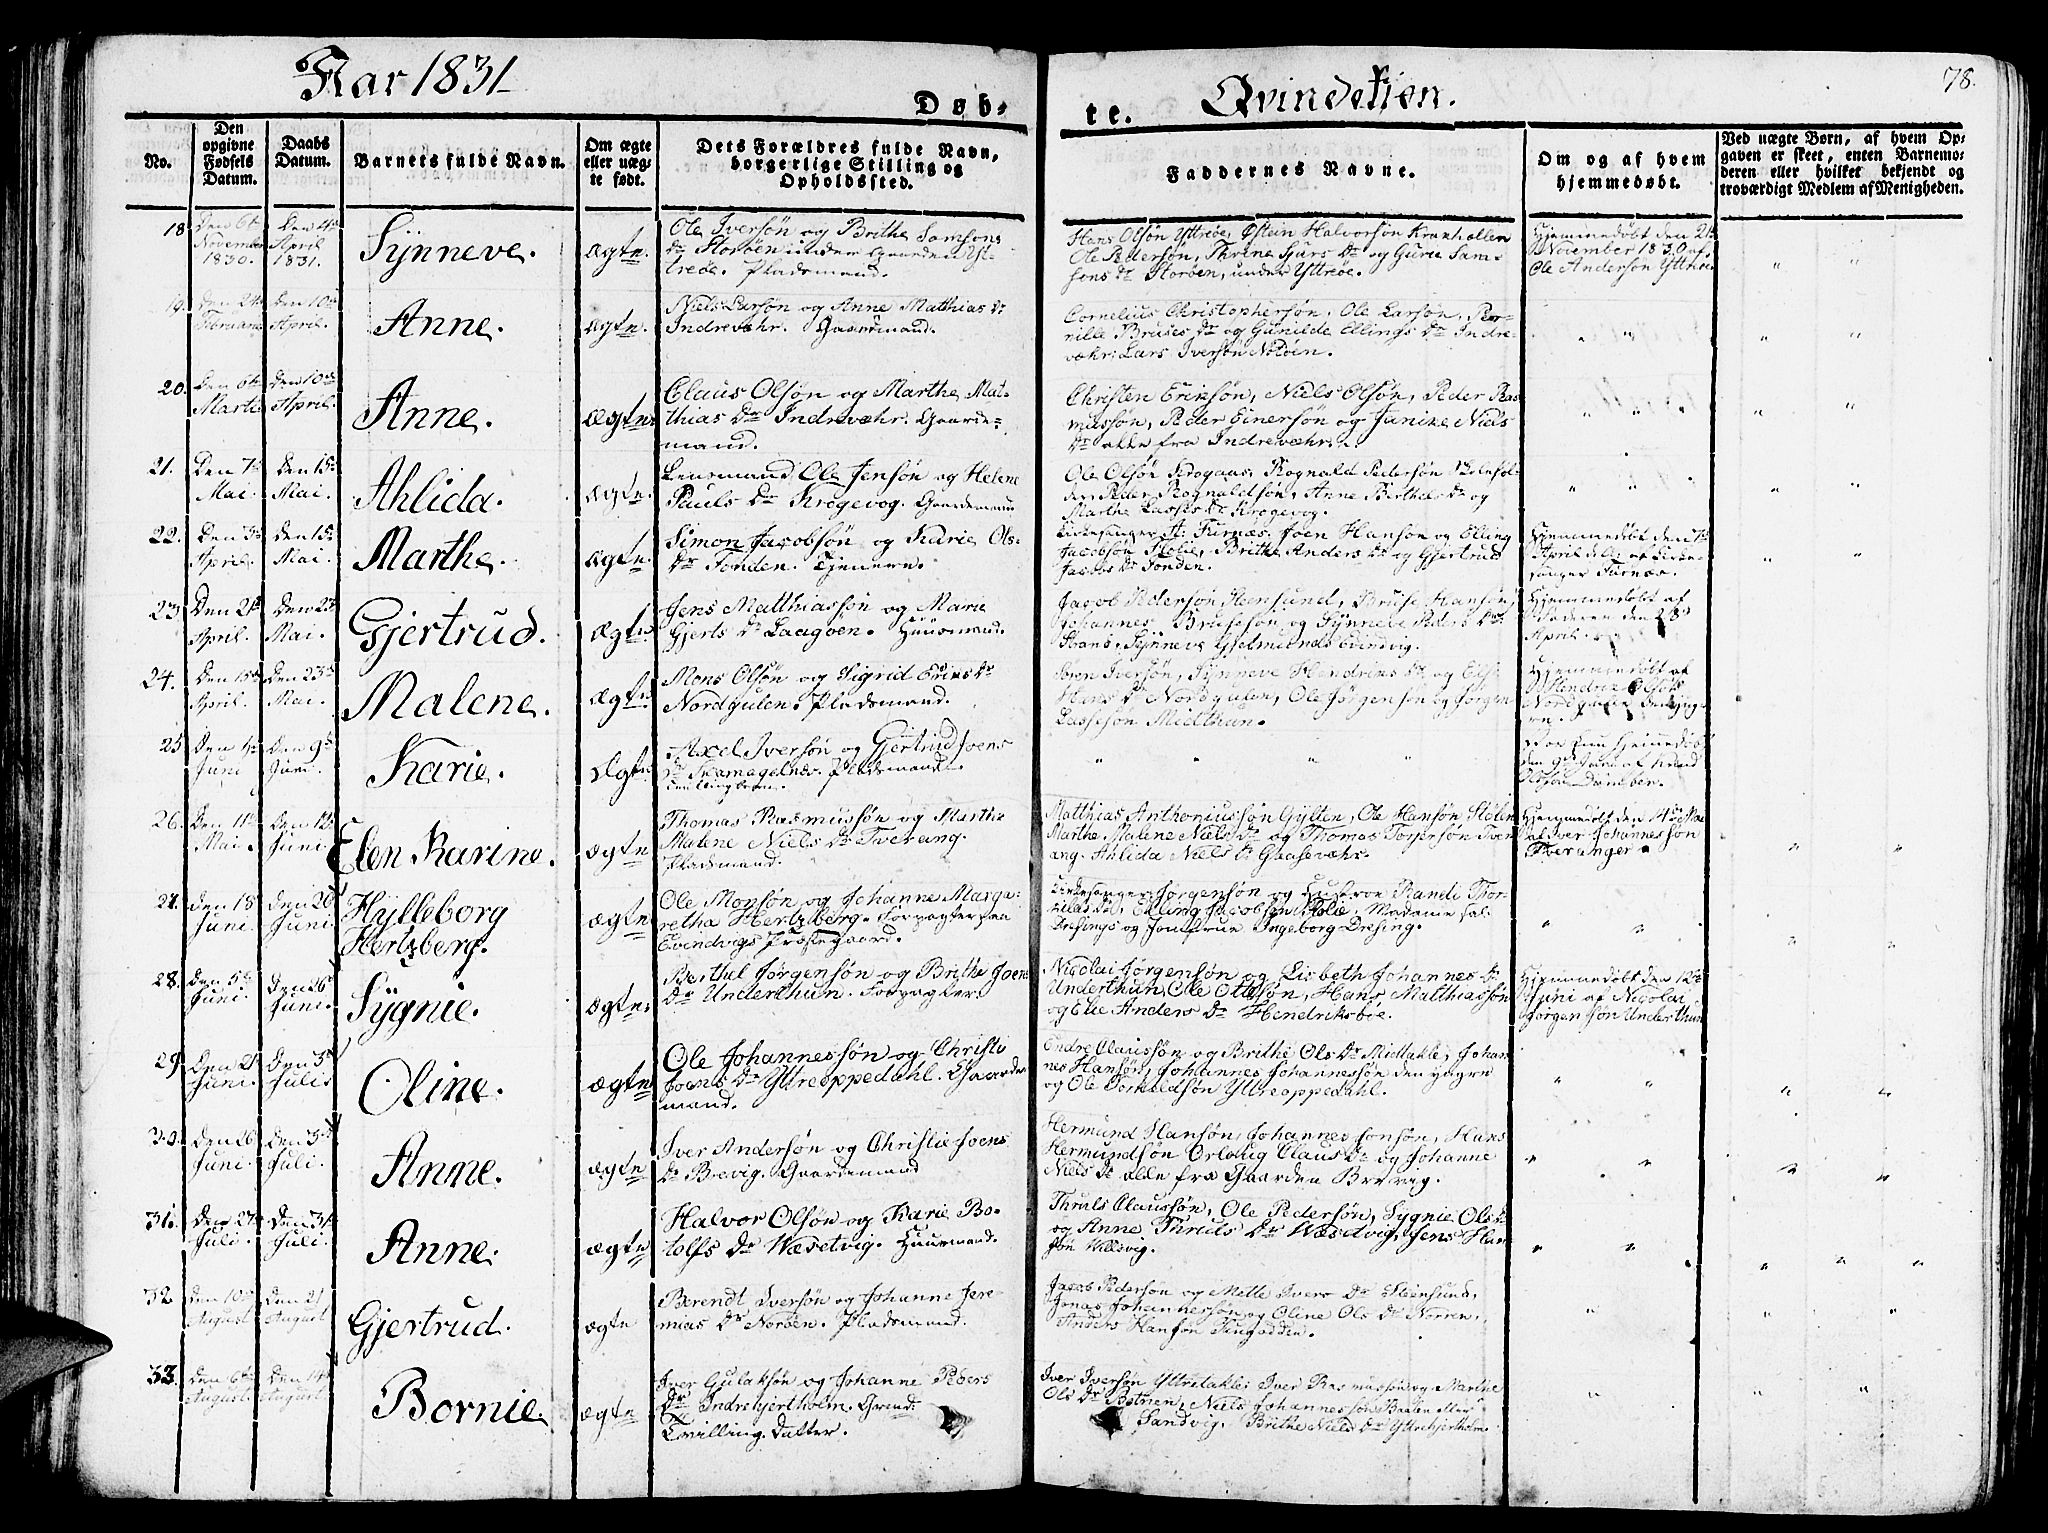 Aar 1831
Døb-
te.
Qvindekiøn.
78.
No.
Den opgivne Fødsels Datum.
Daabs Datum.
Barnets fulde Navn.
Om ægte eller uæg-
te født.
Dets Forældres fulde Navn,
borgerlige Stilling og
Opholdssted.
Faddernes Navne.
Om og af hvem
hjemmedøbt.
Ved uægte Børn, af hvem Op-
gaven er skeet, enten Barnemo-
deren eller hvilket bekjendt og
troværdigt Medlem af Menigheden.
18
Den 6te November 1830.
Den 4de April 1831.
Sÿnneve.
Ægte.
Ole Iversøn og Brithe Samsons
Dr Storøen under Gaarden Yt-
trøe. Pladsmand.
Hans Olsøn Yttrøe, Østein Halvorsøn
Ole Pedersøn, Thrine Sjurs Dr og Guru Sam-
sons Dr Storøen, under Yttrøe.
Hjemmedøbt den 21
November 1830 af
Ole Andersøn Yttrøe
19.
Den 24 Februar
Den 10de April.
Anne.
Ægte.
Niels Larsøn og Anne Matthias Dr
Indrevæhr. Gaardmand.
Cornelius Christophersøn, Ole Larsøn, Per-
nille Bruses Dr og Gunilde Ellings Dr Indre-
væhr. Lars Iversøn Noløen.
20.
Den 6te Marti
Den 10de April.
Anne.
Ægte.
Claus Olsøn og Marthe Mat-
thias Dr Indrevæhr. Gaarde-
mand.
Christen Eriksøn, Niels Olsøn, Peder Ras-
mussøn, Peder Einersøn og Janike Niels
Dr alle fra Indrevæhr.
21.
Den 7de Mai.
Den 15de Mai.
Ahlida.
Ægte.
Lensmand Ole Jensøn og Helene
Pauls Dr Krogevog. Gaardemand
Ole Olsøn Skogaas, Rognald Pedersøn
Peder Rognaldsøn, Anne Birthe Dr og
Marthe Lasses Dr Krogevog.
22.
Den 3de April.
Den 15de Mai.
Marthe.
Ægte.
Simon Jacobsøn og Karie Ols-
Dr Tonden. Tjenere.
Kirkesanger A: Furnæs. Joen Hansøn og Elling
Jacobsøn Kolie, Brithe Anders Dr og Gjertrud
Jacobs Dr Tonden.
Hjemmedøbt den 7de
April af Kirke-
sanger Furnæs.
23.
Den 21 April.
Den 23 Mai.
Gjertrud.
Ægte
Jens Matthiassøn og Marie
Gjerts Dr Laagøen. Huusmand.
Jacob Pedersøn Steensund, Bruse Hansøn,
Johannes Brusesøn og Sÿnneve Peders Dr
Evindvig.
Hjemmedøbt af
Faderen den 28
April.
24.
Den 15de April.
Den 23de Mai.
Malene.
Ægte
Mons Olsøn og Sigrid Eriks Dr
Nordgulen. Pladsemand.
Iversøn, Sÿnneve Hendriks Dr, og
Hans Dr Nordgulen, Ole Jørgensøn og Jørgen
Lassesøn Midthun.
Hjemmedøbt af
Hendrik Olsøn
Nordgulen
25
Den Juni
Den 9de Juni.
Karie.
Ægte
Axel Iversøn og Gjertrud Joens
Dr Skamagelnæs. Pladsemand.
Tvillingbørn.
den 9de Juni af Knud
26.
Den 11te Mai.
Den 12te Juni.
Elen Karine.
Ægte
Thomas Rasmussøn og Marthe
Malene Niels Dr Tverang.
Pladsemand.
Matthias Anthoniussøn Gÿlten, Ole Hansøn
Marthe Malene Niels Dr og Thomas Torgersøn Tver-
ang. Ahlida Niels Dr Gaasevæhr.
Hjemmedøbt den 14de Mai
af Iver Johannessøn
Tveranger.
27.
Den 18 Juni.
Den 26 Juni.
Hÿlleborg
Hertzberg.
ægte
Ole Monsøn og Johanne Marga-
retha Hertzberg. Forpagter paa
Evindvigs Præstegaard.
Kirkesanger Jørgensøn og Hustroe Randi Thor-
kilds Dr, Elling Jacobsøn Kolie, Madame Sal.
Dresings og Jomfrue Ingeborg Dresing.
28.
Den 5te Juni.
Den 26 Juni.
Sÿgnie.
Ægte.
Berthel Jørgensøn og Brithe Joens
Dr Underthun. Forpagter.
Nicolai Jørgensøn og Lisbeth Johannes Dr
Underthun, Ole Ottesøn, Hans Matthiassøn
og Elie Anders Dr Hendriksbøe.
Hjemmedøbt den 12te
Juni af Nicolai
Jørgensøn Underthun
29.
Den 21 Juni.
Den 3de Julii
Oline.
ægte
Ole Johannessøn og Christi
Joens Dr Yttreoppedahl. Gaarde
mand.
Endre Claussøn og Brithe Ols Dr Midtakle, Johan-
nes Hansøn, Johannes Johannessøn den yngre
og Ole Torkeldsøn Yttreoppedahl.
30.
Den 26 Juni.
Den 3de Juli.
Anne.
ægte
Iver Andersøn og Christie Joens
Dr Brevig. Gaardemand
Hermund Hansøn, Johannes Jonsøn, Hans
Hermundsøn Orloug Claus Dr og Johanne
Niels Dr alle fra Gaarden Brevig.
31.
Den 27 Juli.
Den 31 Juli.
Anne.
ægte
Halvor Olsøn og Karie Bo-
tolfs Dr Wæsetvig. Huusmand.
Thruls Claussøn, Ole Pedersøn, Sÿgnie Ols Dr
og Anne Thruls Dr Wæsetvig, Jens Han-
søn
32
Den 10de August
Den 21 August
Gjertrud.
ægte
Berendt Iversøn og Johanne Jere-
mias Dr Norøen. Pladsemand.
Jacob Pedersøn og Mette Ivers Dr Steensund,
Jonas Johannessøn og Oline Ols Dr Norøen.
Anders Hansøn Tungodden.
33.
Den 6te August.
Den 14de August
Bornie.
ægte
Iver Gulaksøn og Johanne Peders
Dr Indrehjertholm.
Tvilling. Datter.
Iver Iversøn Yttretakle, Iver Rasmussøn og Marthe
Ols Dr Botnen, Niels Johannessøn
Sandvig. Brithe Niels Dr Yttrehjertholm.